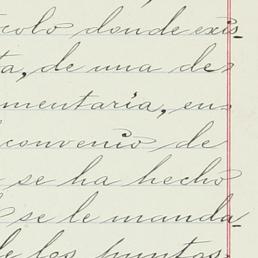 colo donde exis-
ta, de una de-
mentaria, en-
convenio de
se ha hecho
se le manda-
de los puntos